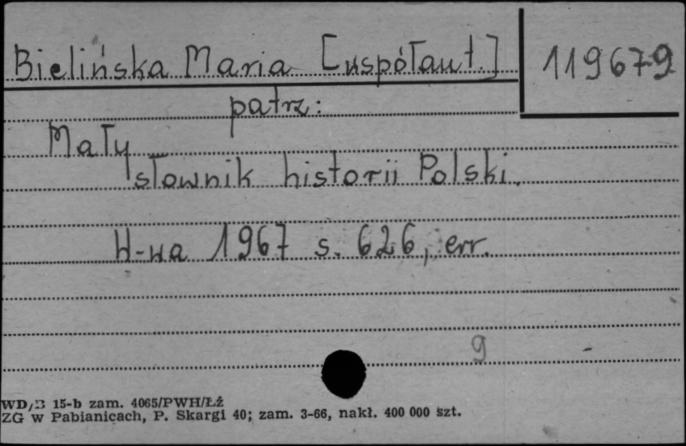 Bielińska Maria [współaut.]
119679
patrz:
Mały
słownik historii Polski.
W-wa 1967 s. 626, err.
9
WD/B 15-b zam. 4065/PWH/Łż
ZG w Pabianicach, P. Skargi 40; zam. 3-66, nakł. 400 000 szt.